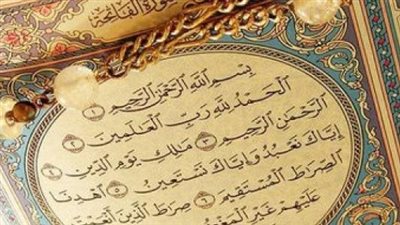 سورة الفاتحة
بِسْمِ اللَّهِ الرَّحْمَٰنِ الرَّحِيمِ ١
الْحَمْدُ لِلَّهِ رَبِّ الْعَالَمِينَ ٢
الرَّحْمَٰنِ الرَّحِيمِ ٣ مَالِكِ يَوْمِ الدِّينِ ٤
إِيَّاكَ نَعْبُدُ وَإِيَّاكَ نَسْتَعِينُ ٥ اهْدِنَا
الصِّرَاطَ الْمُسْتَقِيمَ ٦ صِرَاطَ الَّذِينَ أَنْعَمْتَ
عَلَيْهِمْ غَيْرِ